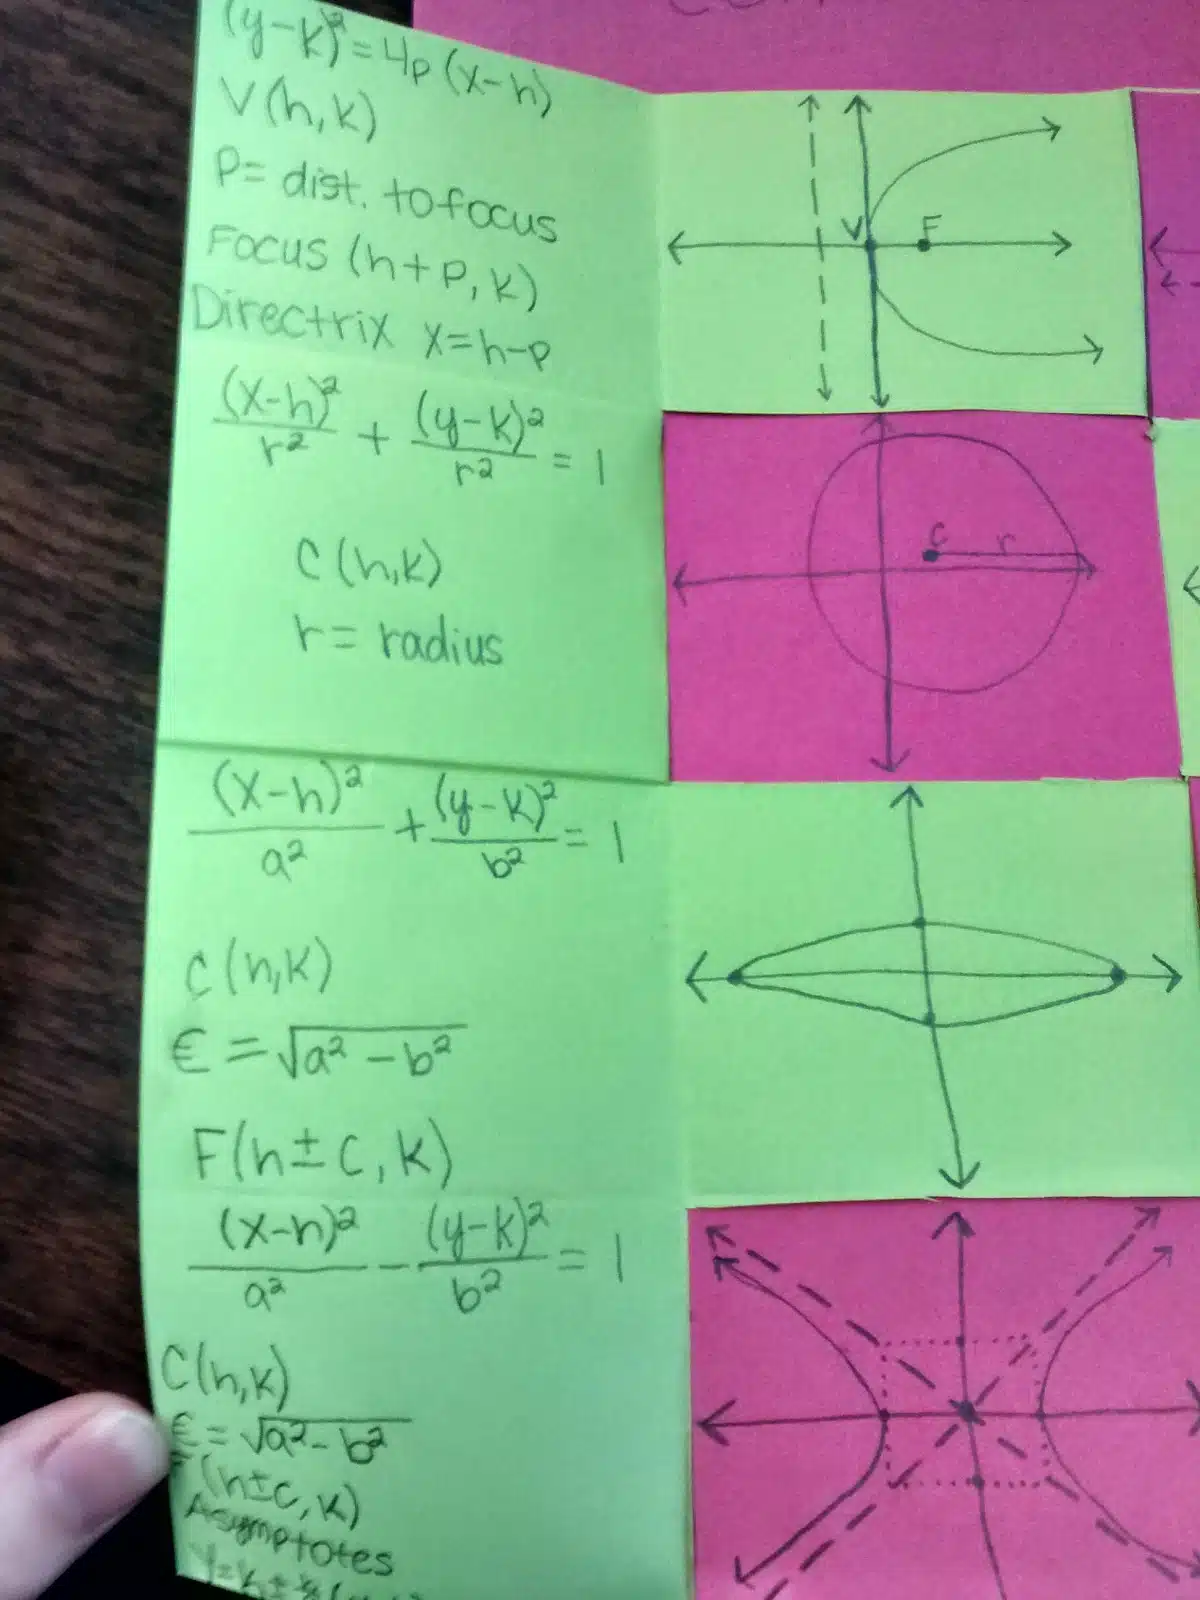 (y-k)²=4p(x-h)
V(h,k)
P= dist. to focus
Focus (h+p, k)
Directrix x=h-p
V F
(x-h)²/r² + (y-k)²/r² = 1
C(h,k)
r= radius
C r
(x-h)²/a² + (y-k)²/b² = 1
C(h,k)
€ = √a² - b²
F(h±c, k)
(x-h)²/a² - (y-k)²/b² = 1
C(h,k)
€ = √a² - b²
(h±c, k)
Asymptotes